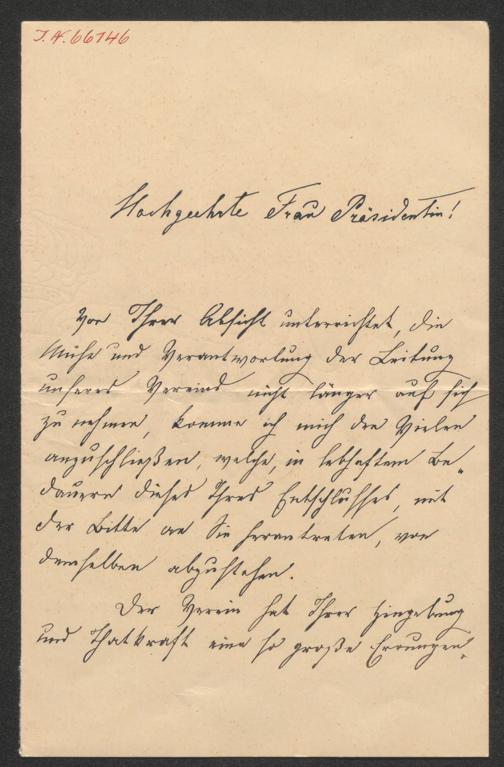 I.N. 66746
Hochgeehrte Frau Präsidentin!
Von Ihrer Absicht unterrichtet, die
Mühe und Verantwortung der Leitung
unseres Vereins nicht länger auf sich
zu nehmen, komme ich mich den Vielen
anzuschließen, welche, in lebhaftem Be-
dauern dieses Ihres Entschlusses, mit
der Bitte an Sie herantreten, von
demselben abzustehen.
Der Verein hat Ihrer Hingebung
und Thatkraft eine so große Errungen-